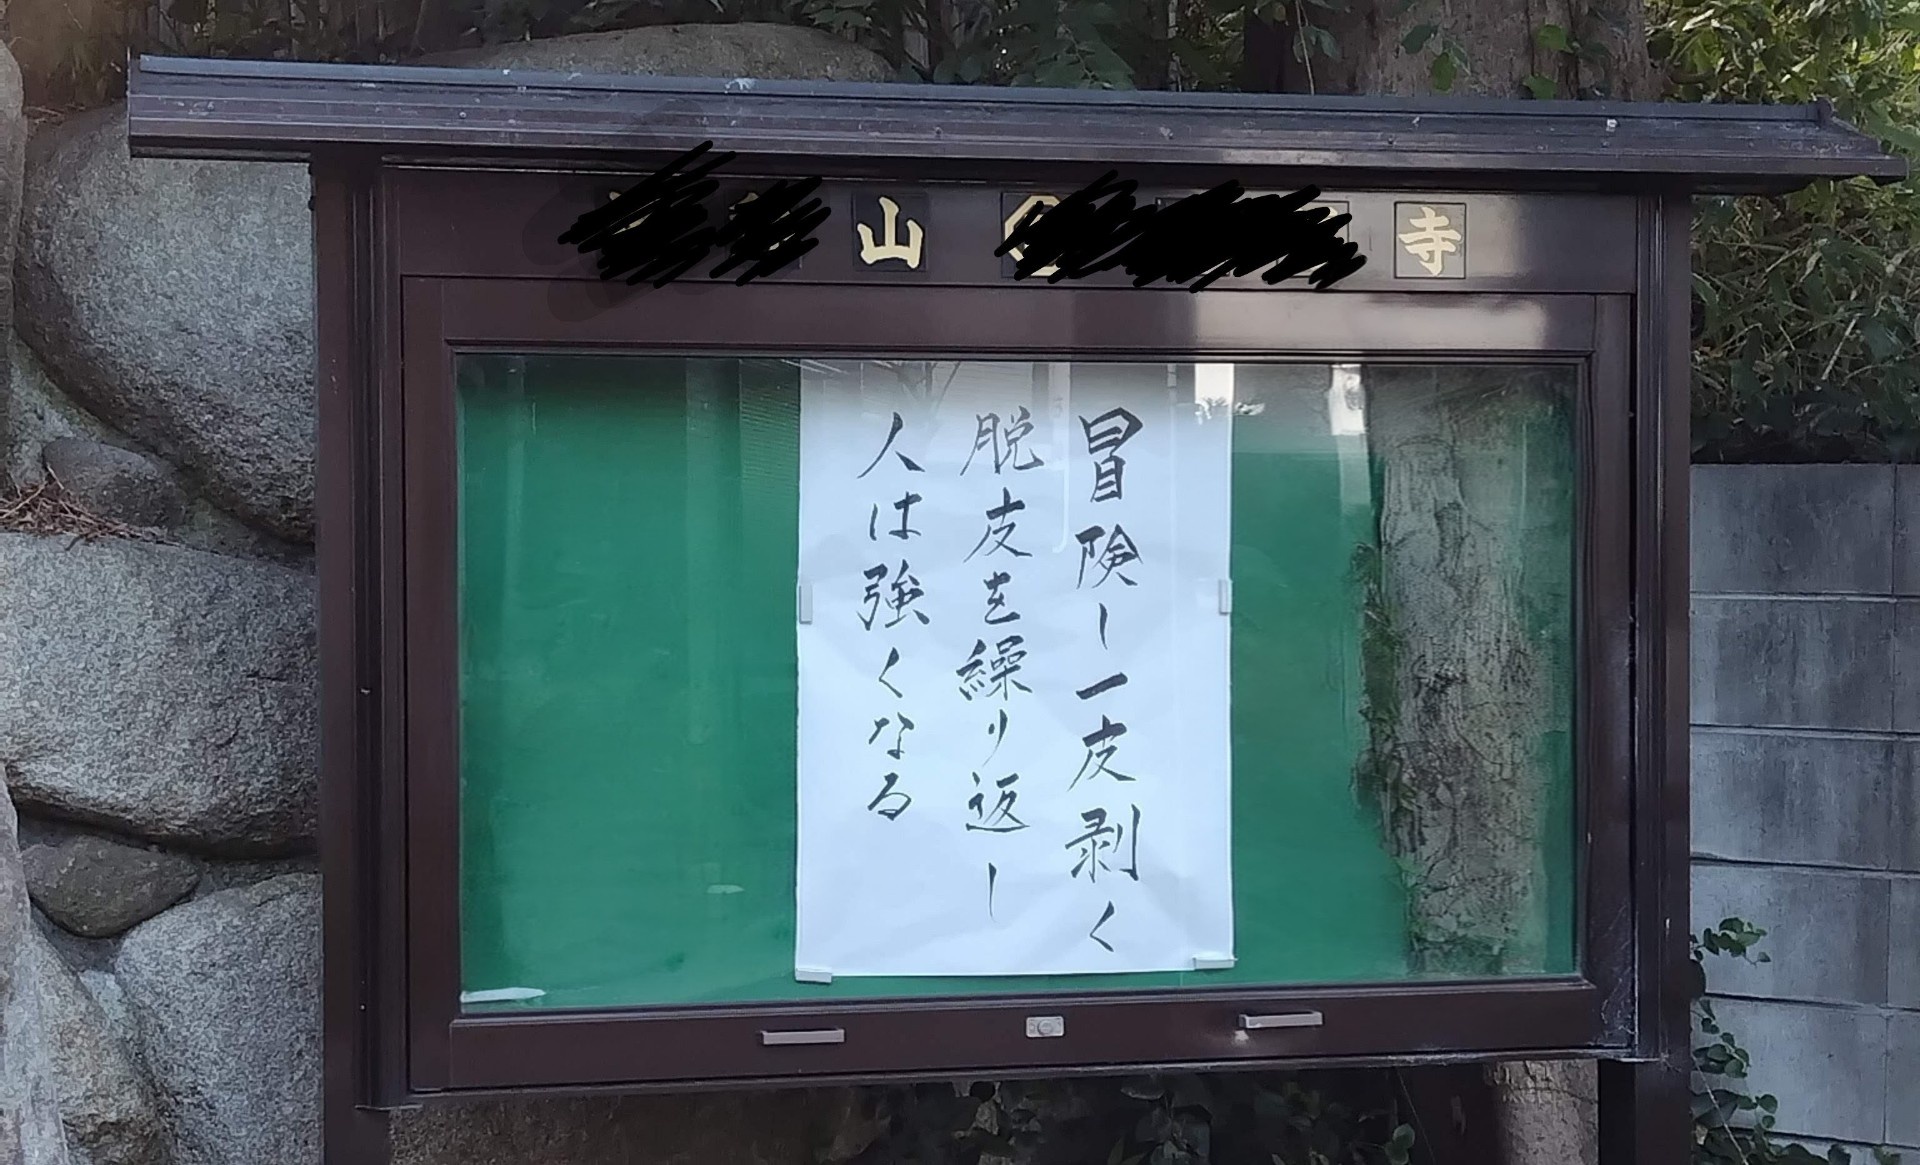 山 寺
冒険し一皮剥く
脱皮を繰り返し
人は強くなる